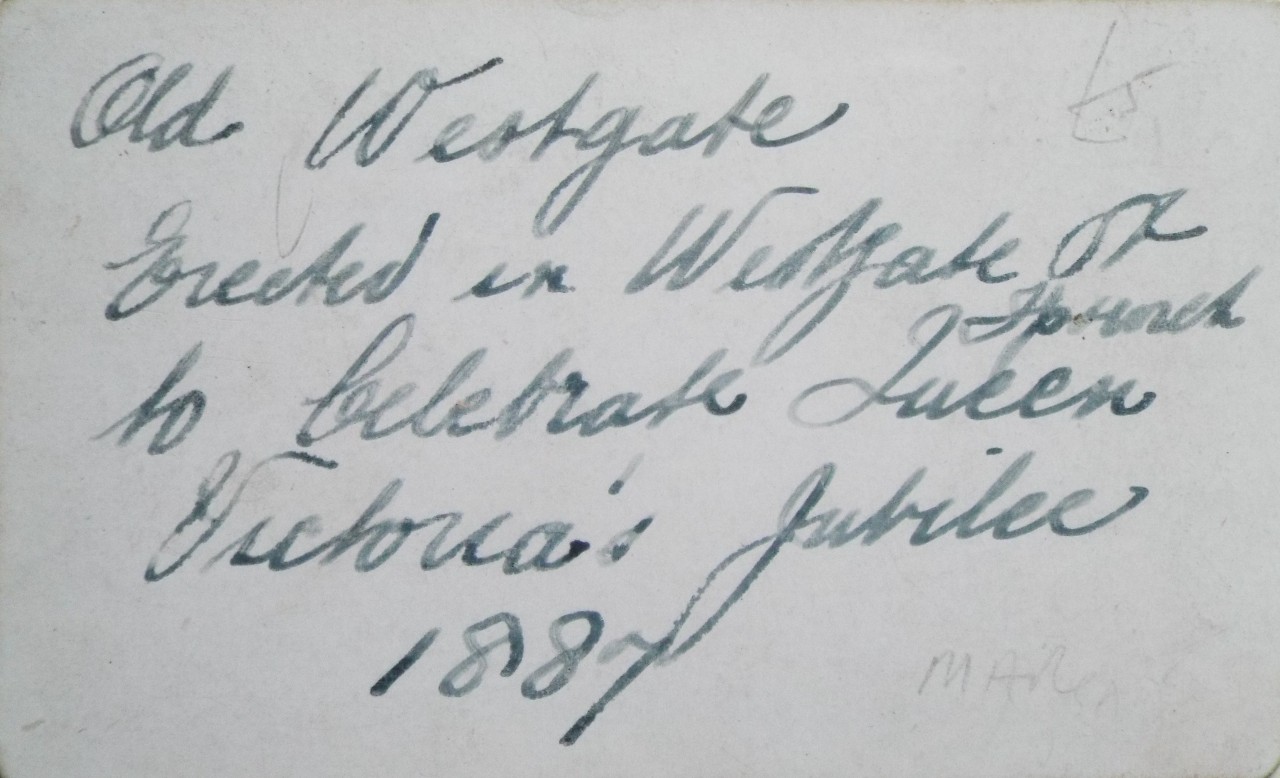 Old Westgate
Erected in Westgate St
Ipswich
to Celebrate Queen
Victoria's Jubilee
1887